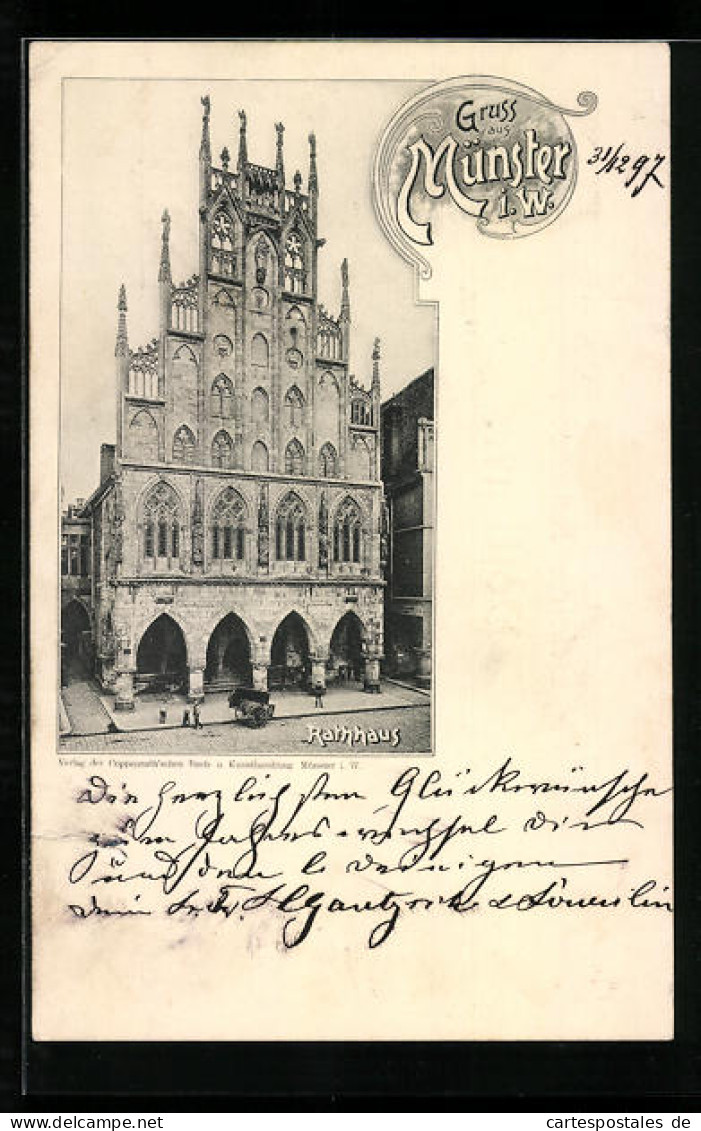 Gruss
aus
Münster
i. W.
31/12 97
Rathhaus
Verlag der Coppenrath'schen Buch- u Kunsthandlung Münster i. W.
Die herzlichsten Glückwünsche
zum Jahreswechsel Dir
und den l. Deinigen
Dein
cartespostales de